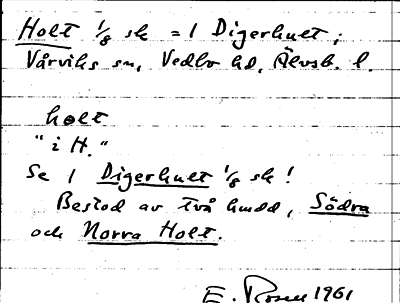 Holt 1/8 sk = 1 Digerhult;
Vårviks sn, Vedbo hd, Älvsb. l.
holt
"i H."
Se 1 Digerhult 1/8 sk!
Bestod av två hmdd, Södra
och Norra Holt.
E. Rosen 1961